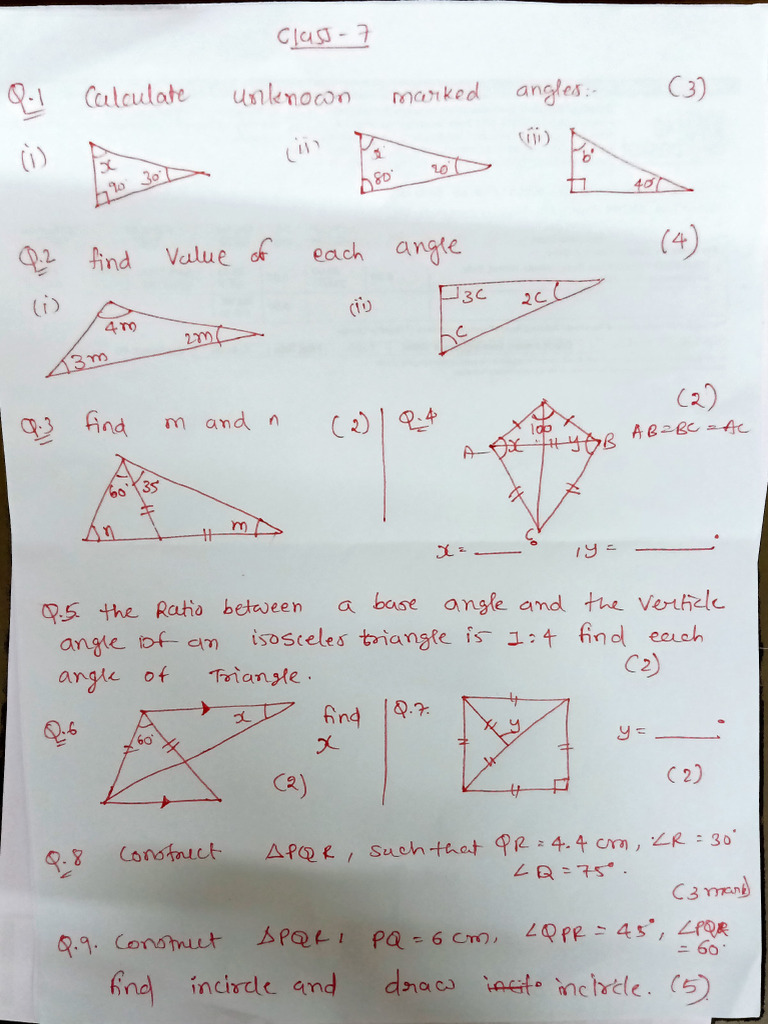 Class - 7
Q.1 Calculate unknown marked angles:- (3)
(i) x 90° 30° (ii) x 80° 20° (iii) b° 40°
Q.2 find Value of each angle (4)
(i) 4m 3m 2m (ii) 3c 2c c
Q.3 find m and n (2) Q.4 (2)
AB=BC=AC
60° 35 n m 100 A x y B C
x = ___ , y = ___°
Q.5. the Ratio between a base angle and the Verticle
angle of an isosceles triangle is 1:4 find each
angle of Triangle. (2)
Q.6 60° x find x (2) Q.7. y y = ___°
(2)
Q.8 Construct ΔPQR, such that QR = 4.4 cm, ∠R = 30°
∠Q = 75°.
(3 mark)
Q.9. Construct ΔPQR, PQ = 6 cm, ∠QPR = 45°, ∠PQR
= 60°
find incircle and draw incircle. (5)